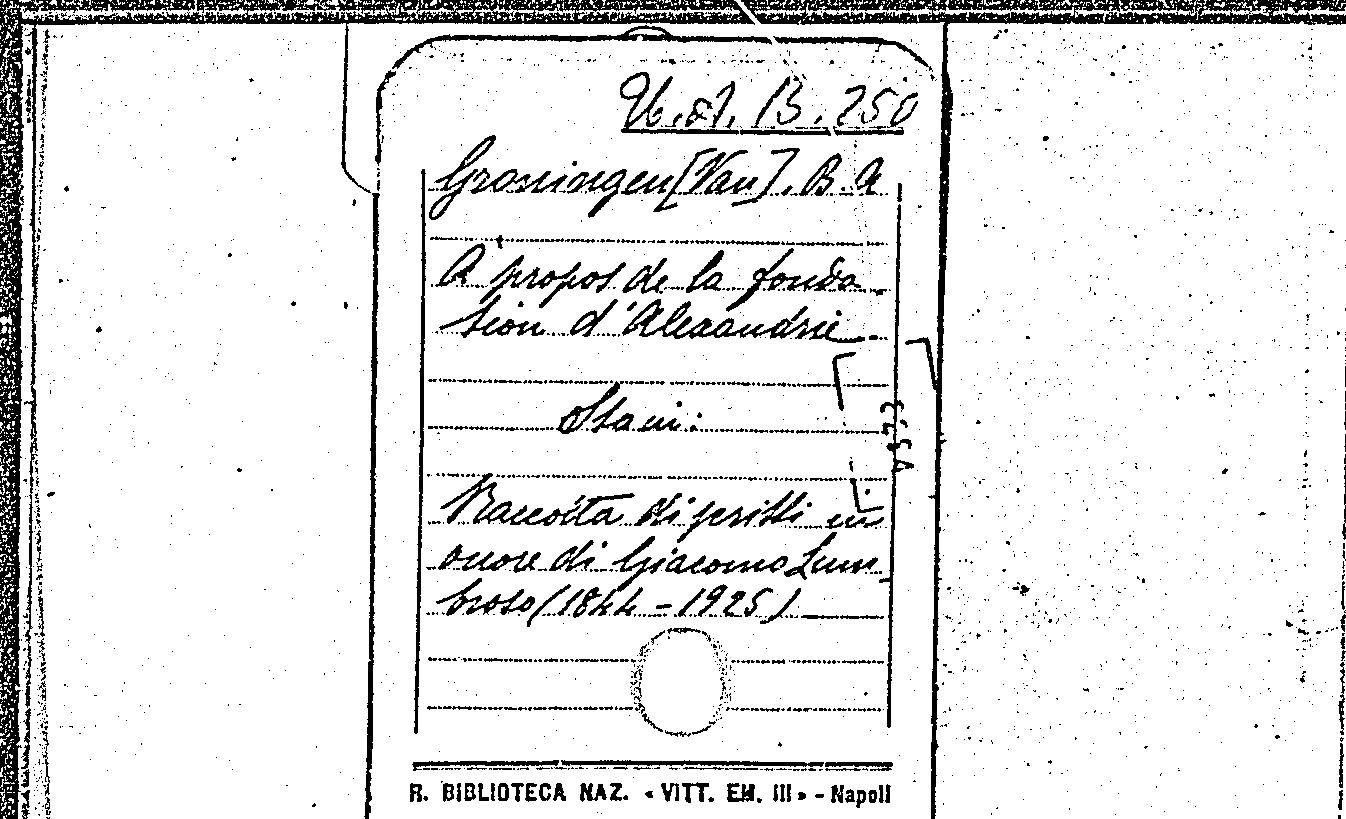 B. 250
Groningen [Van]. B. A
A propos de la fonda-
tion d'Alexandrie.
Sta in:
Raccolta di scritti in
onore di Giacomo Lum-
broso (1844-1925)
R. BIBLIOTECA NAZ. « VITT. EM. III » - Napoli